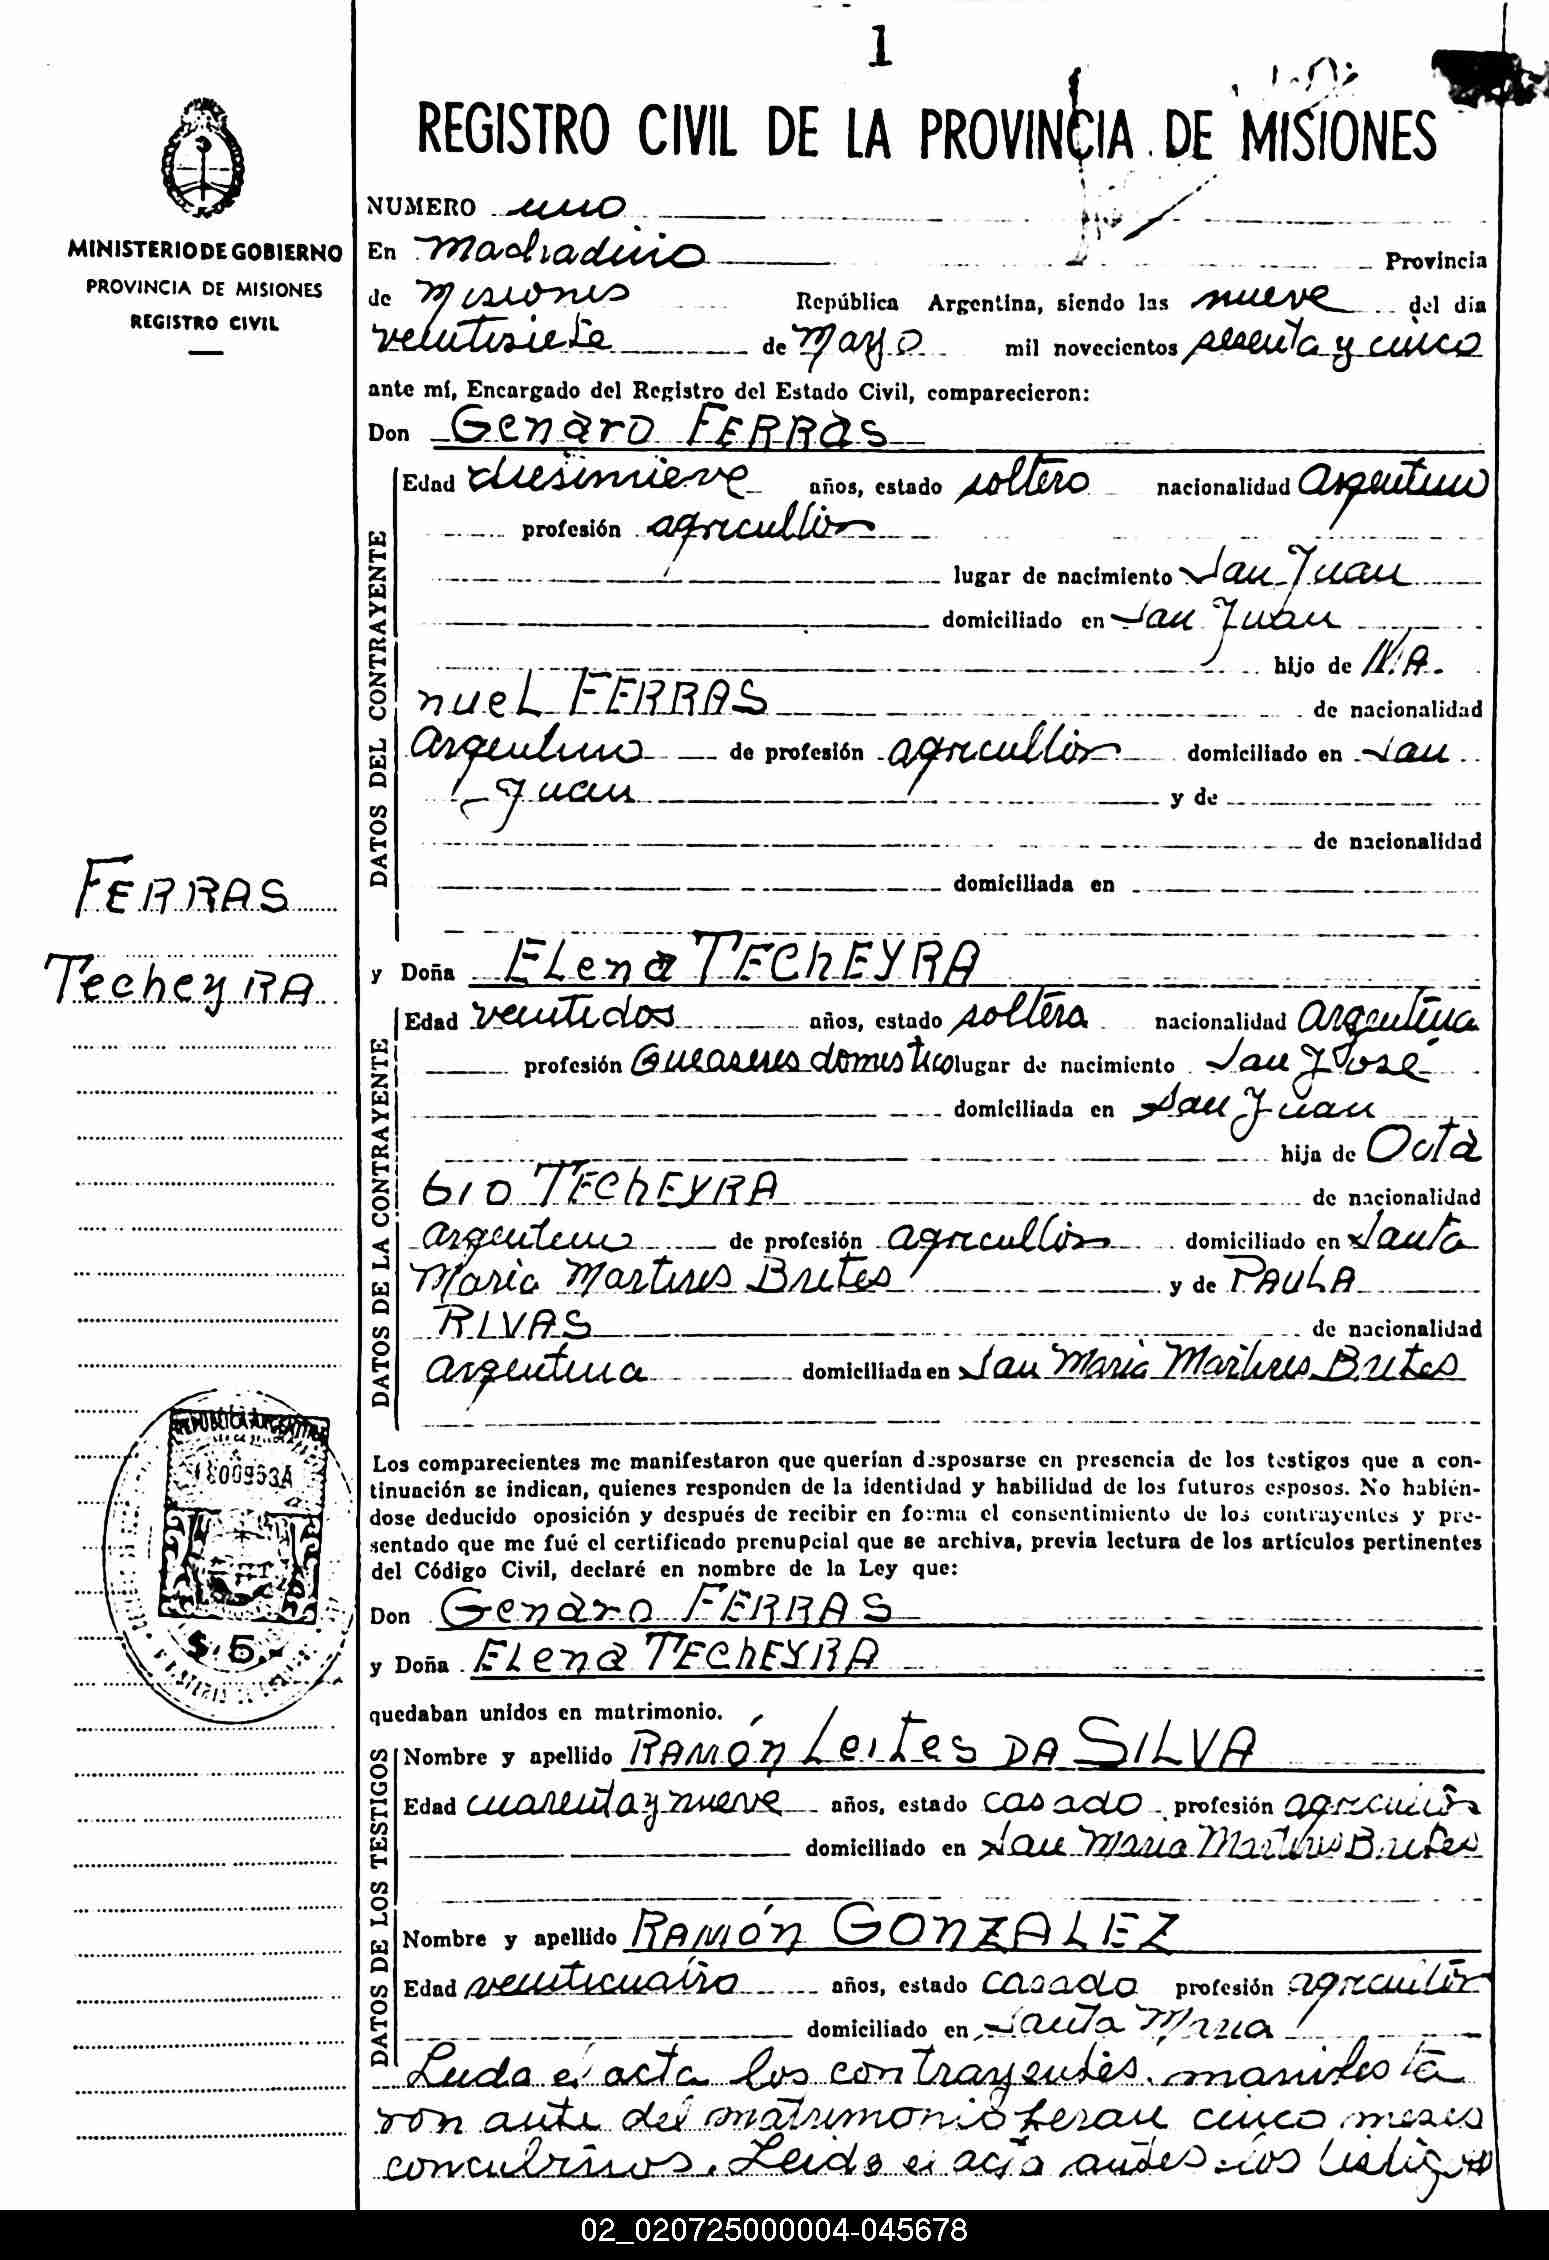 1
REGISTRO CIVIL DE LA PROVINCIA DE MISIONES
MINISTERIO DE GOBIERNO
PROVINCIA DE MISIONES
REGISTRO CIVIL
NUMERO uno
En Machadiño Provincia
de Misiones República Argentina, siendo las nueve del día
veintisiete de Mayo mil novecientos sesenta y cinco
ante mí, Encargado del Registro del Estado Civil, comparecieron:
Don Genaro FERRAS
DATOS DEL CONTRAYENTE
Edad diesinueve años, estado soltero nacionalidad Argentino
profesión agricultor
lugar de nacimiento San Juan
domiciliado en San Juan
hijo de MA.
nueL FERRAS de nacionalidad
Argentino de profesión agricultor domiciliado en San
Juan y de
de nacionalidad
domiciliada en
FERRAS
TecheyRA
y Doña ELena TECHEYRA
DATOS DE LA CONTRAYENTE
Edad veintidos años, estado soltera nacionalidad Argentina
profesión Queaseres domestico lugar de nacimiento San José
domiciliada en San Juan
hija de Octa
bio TECHEYRA de nacionalidad
argentino de profesión agricultor domiciliado en Santa
Maria Martires Brites y de PAULA
RIVAS de nacionalidad
argentina domiciliada en San Maria Martires Brites
Los comparecientes me manifestaron que querían desposarse en presencia de los testigos que a con-
tinuación se indican, quienes responden de la identidad y habilidad de los futuros esposos. No habién-
dose deducido oposición y después de recibir en forma el consentimiento de los contrayentes y pre-
sentado que me fué el certificado prenupcial que se archiva, previa lectura de los artículos pertinentes
del Código Civil, declaré en nombre de la Ley que:
Don Genaro FERRAS
y Doña ELena TECHEYRA
quedaban unidos en matrimonio.
REPUBLICA ARGENTINA
00953A
$ 5.-
DATOS DE LOS TESTIGOS
Nombre y apellido RAMÓn Leites DA SILVA
Edad cuarenta y nueve años, estado casado profesión agricultor
domiciliado en San Maria Martires Brites
Nombre y apellido RAMÓn GONZALEZ
Edad veinticuatro años, estado casado profesión agricultor
domiciliado en Santa Maria
Leida el acta los contrayentes manifesta
ron ante del matrimonio cinco meses
concubinos. Leida el acta antes los testigos
02_020725000004-045678